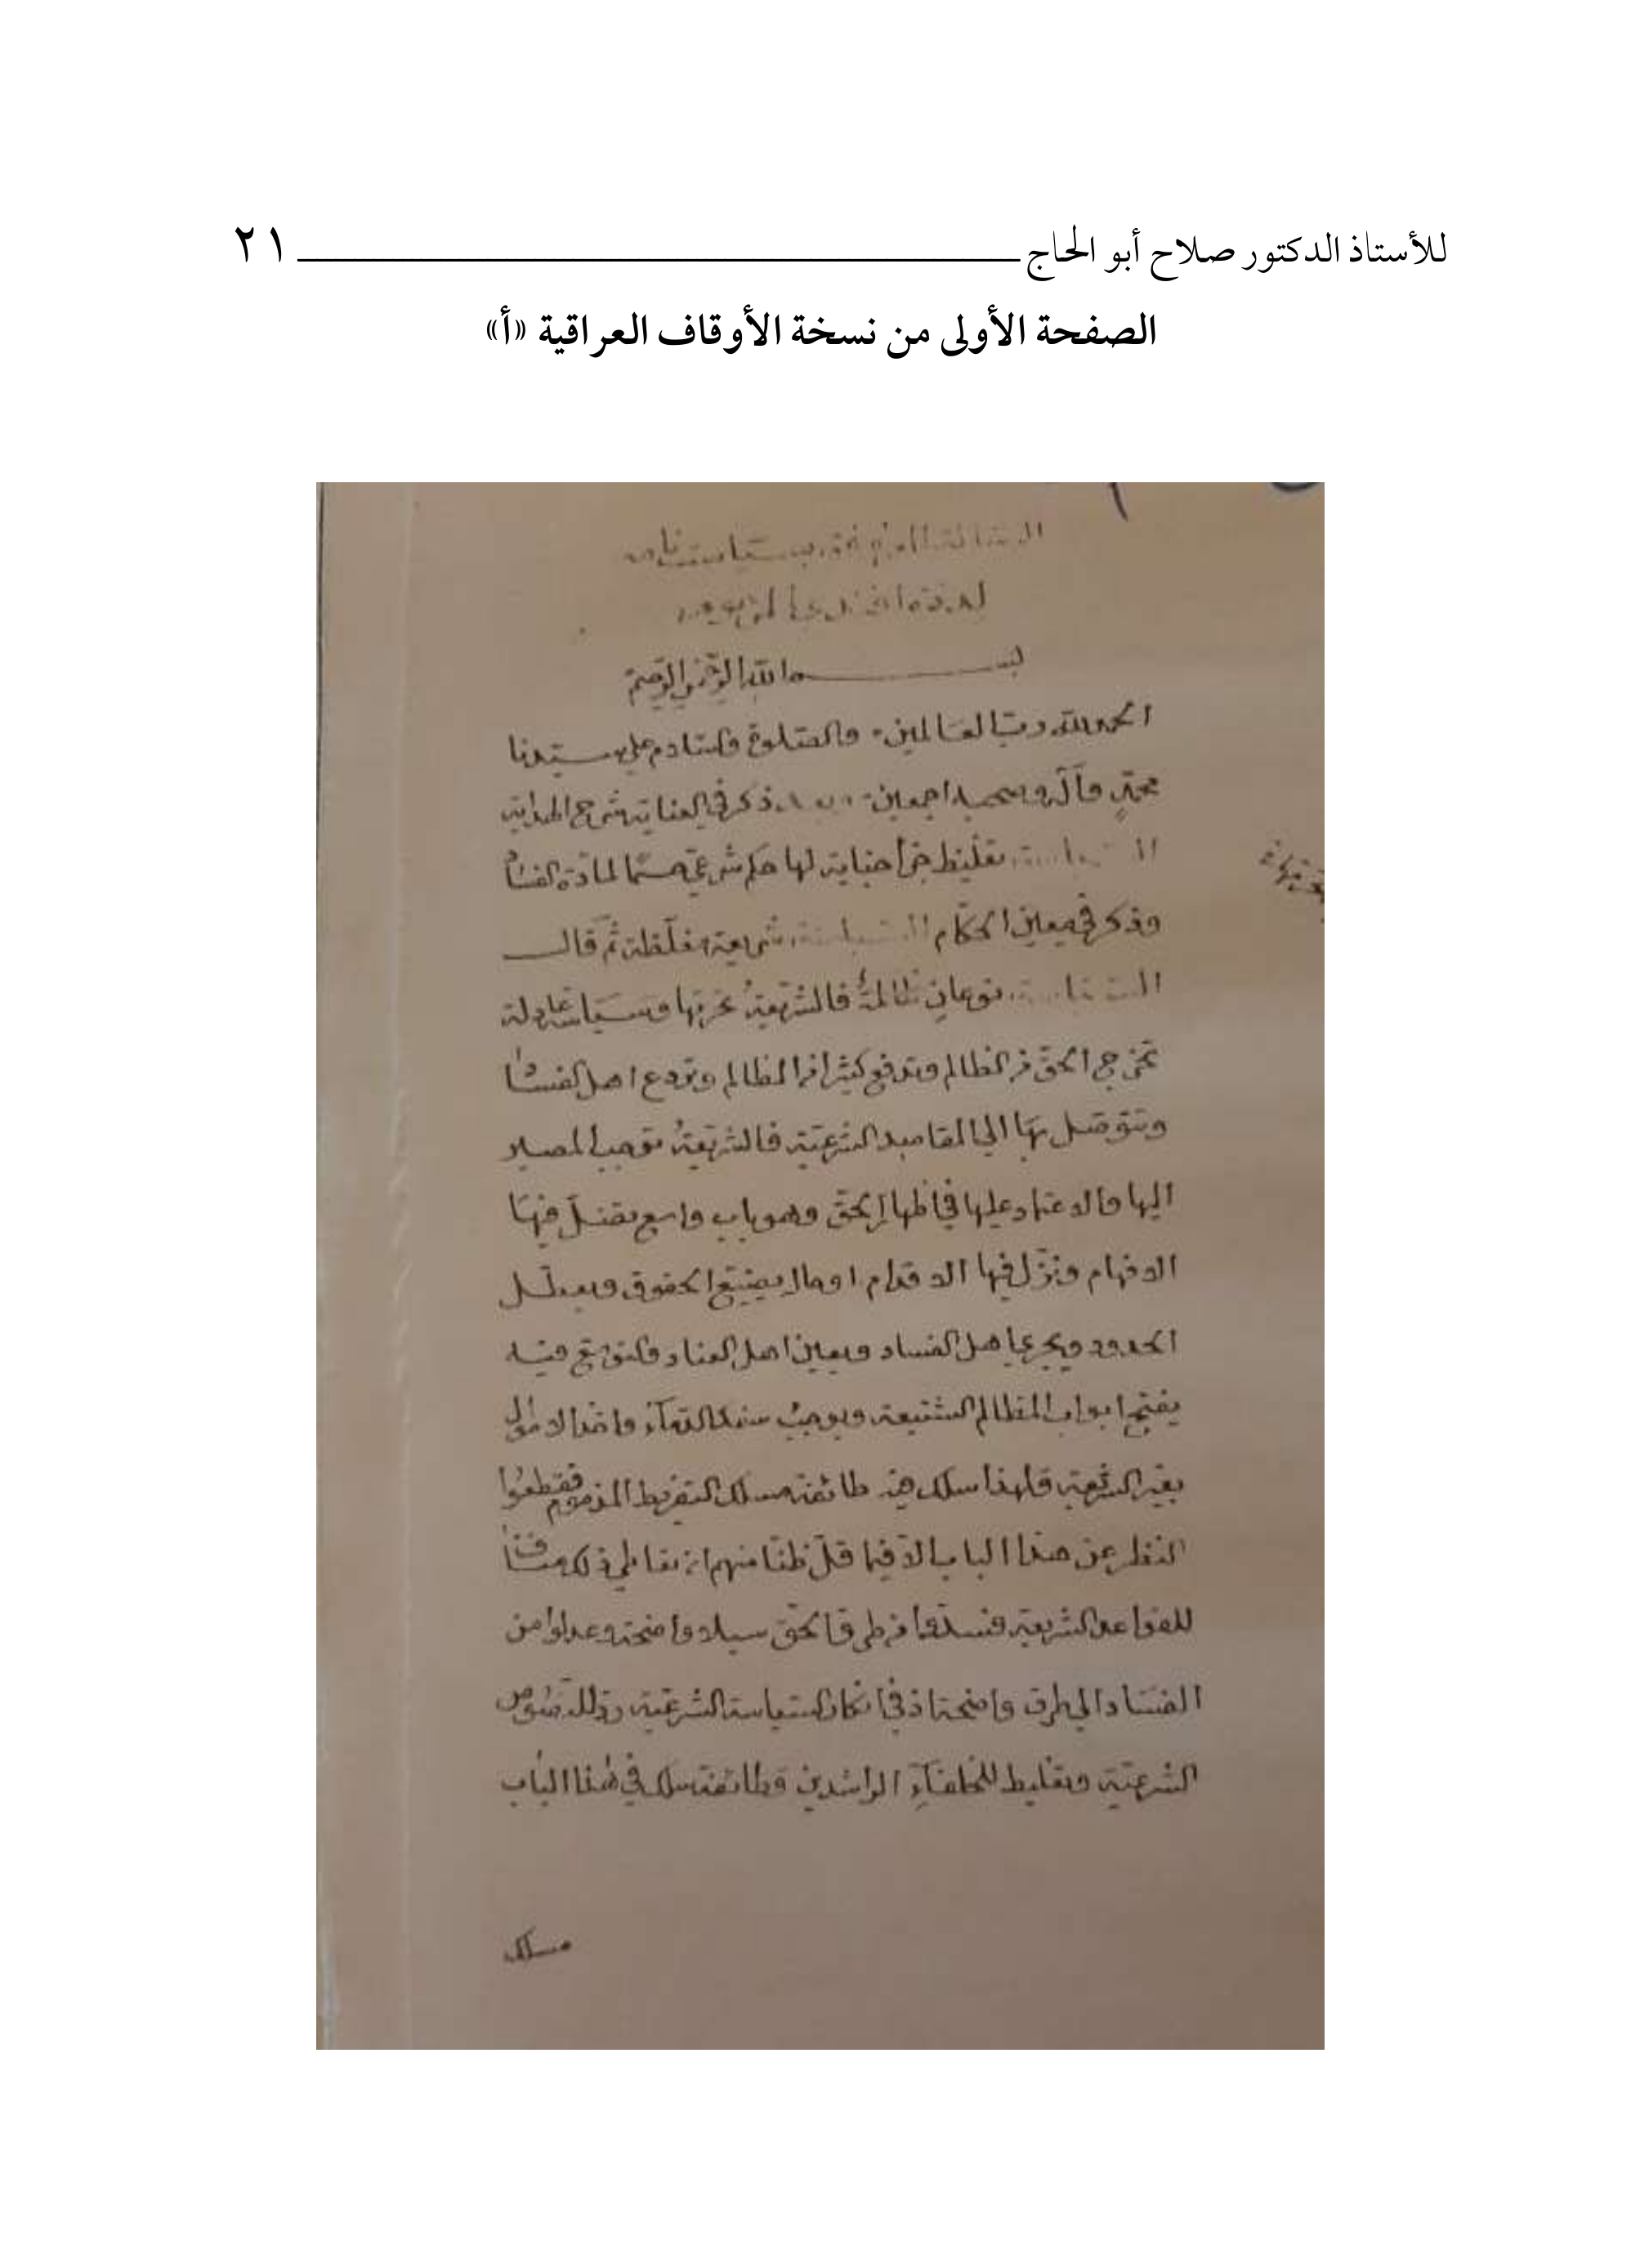 للأستاذ الدكتور صلاح أبو الحاج ٢١
الصفحة الأولى من نسخة الأوقاف العراقية «أ»
بسم الله الرحمن الرحيم
الحمد لله رب العالمين والصلوة والسلام على سيدنا
محمد وآله وصحبه اجمعين ذكر في العناية شرح الهداية
تغليظ جزأ جناية لها حكم شرعي حسما لمادة الفساد
وذكر في معين الحكام السياسة شريعة مغلظة ثم قال
السياسة نوعان ظالمة فالشريعة تحرمها وسياسة عادلة
تخرج الحق من الظالم وتدفع كثيرا من المظالم وتردع اهل الفساد
وتتوصل بها الى المقاصد الشرعية فالشريعة توجب المصير
اليها والاعتماد عليها في اظهار الحق وهو باب واسع تضل فيها
الافهام وتزل فيها الاقدام اوهاله يضيع الحقوق ويعطل
الحدود ويجرئ اهل الفساد ويعين اهل العناد والتوسع فيه
يفتح ابواب المظالم الشنيعة ويوجب سفك الدماء واخذ الاموال
بغير الشريعة فلهذا سلك فيه طائفة مسلك التفريط المذموم فقطعوا
النظر عن هذا الباب الا فيما قل ظنا منهم ان تعاطي ذلك مناف
للقواعد الشرعية فسدوا من طرق الحق سبلا واضحة وعدلوا من
الفساد الى طرق واضحة اذ في انكار السياسة الشرعية رد للنصوص
الشرعية وتغليط للخلفاء الراشدين وطائفة سلك في هذا الباب
مسلك